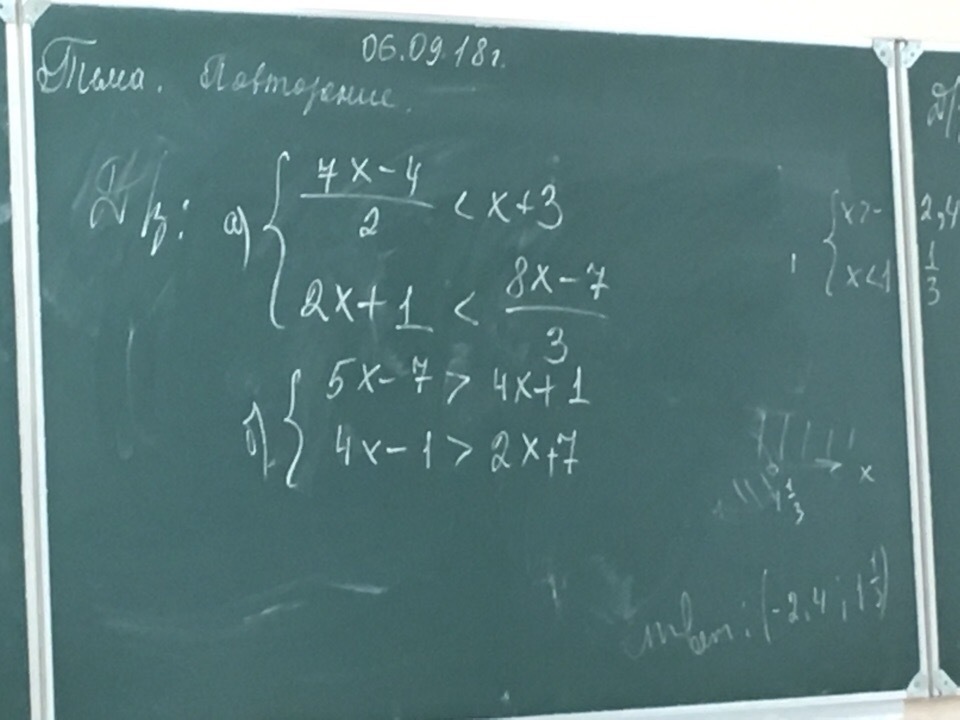 06.09.18г.
Тема. Повторение.
Д/з: а) { (7x-4)/2 < x+3
2x+1 < (8x-7)/3
б) { 5x-7 > 4x+1
4x-1 > 2x+7
{ x>-2,4
x<1 1/3
x
1 1/3
Ответ: (-2,4; 1 1/3)